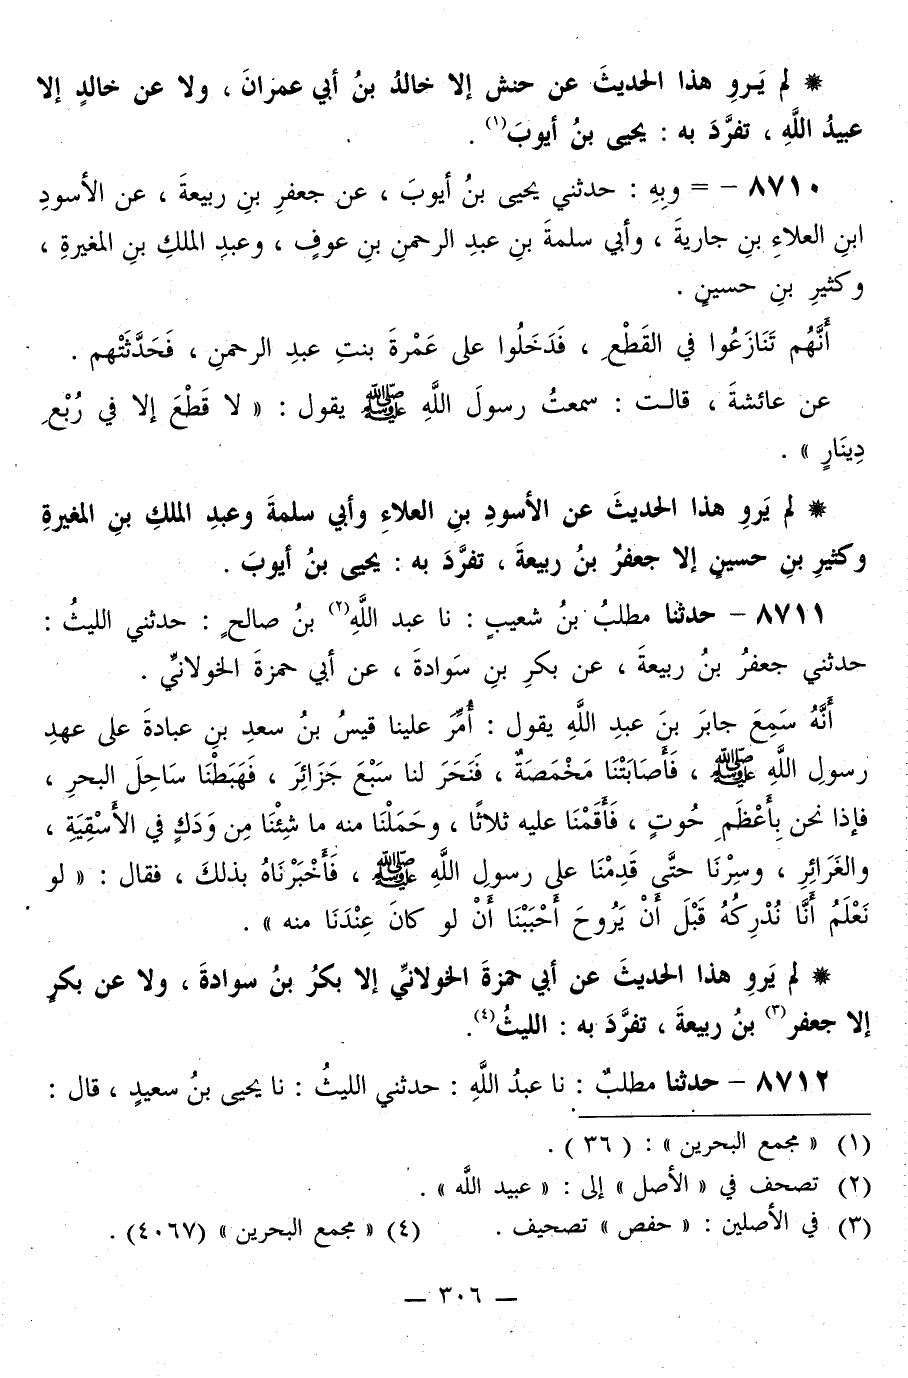 * لم يَروِ هذا الحديثَ عن حنش إلا خالدُ بنُ أبي عمرانَ ، ولا عن خالدٍ إلا
عبيدُ اللَّهِ ، تفرَّدَ به : يحيى بنُ أيوبَ(١) .
٨٧١٠ – = وبِهِ : حدثني يحيى بنُ أيوبَ ، عن جعفرِ بنِ ربيعةَ ، عن الأسودِ
ابنِ العلاءِ بنِ جاريةَ ، وأبي سلمةَ بنِ عبدِ الرحمنِ بنِ عوفٍ ، وعبدِ الملكِ بنِ المغيرةِ ،
وكثيرِ بنِ حسينٍ .
أَنَّهُم تَنَازَعُوا في القَطْعِ ، فَدَخَلُوا على عَمْرةَ بنتِ عبدِ الرحمنِ ، فَحَدَّثَتْهم .
عن عائشةَ ، قالت : سمعتُ رسولَ اللَّهِ ﷺ يقول : « لا قَطْعَ إلا في رُبْعِ
دِينَارٍ » .
* لم يَروِ هذا الحديثَ عن الأسودِ بنِ العلاءِ وأبي سلمةَ وعبدِ الملكِ بنِ المغيرةِ
وكثيرِ بنِ حسينٍ إلا جعفرُ بنُ ربيعةَ ، تفرَّدَ به : يحيى بنُ أيوبَ .
٨٧١١ – حدثنا مطلبُ بنُ شعيبٍ : نا عبد اللَّهِ(٢) بنُ صالحٍ : حدثني الليثُ :
حدثني جعفرُ بنُ ربيعةَ ، عن بكرِ بنِ سَوادةَ ، عن أبي حمزةَ الخولانيِّ .
أَنَّهُ سَمِعَ جابرَ بنَ عبدِ اللَّهِ يقول : أُمِّرَ علينا قيسُ بنُ سعدِ بنِ عبادةَ على عهدِ
رسولِ اللَّهِ ﷺ ، فَأَصَابَتْنَا مَخْمَصَةٌ ، فَنَحَرَ لنا سَبْعَ جَزَائِرَ ، فَهَبَطْنَا سَاحِلَ البحرِ ،
فإذا نحن بِأَعْظَمِ حُوتٍ ، فَأَقَمْنَا عليه ثلاثًا ، وحَمَلْنَا منه ما شِئْنَا مِن وَدَكٍ في الأَسْقِيَةِ ،
والغَرَائِرِ ، وسِرْنَا حتَّى قَدِمْنَا على رسولِ اللَّهِ ﷺ ، فَأَخْبَرْنَاهُ بذلكَ ، فقال : « لو
نَعْلَمُ أَنَّا نُدْرِكُهُ قَبْلَ أَنْ يَرُوحَ أَحْبَبْنَا أَنْ لو كانَ عِنْدَنَا منه » .
* لم يَروِ هذا الحديثَ عن أبي حمزةَ الخولانيِّ إلا بكرُ بنُ سوادةَ ، ولا عن بكرٍ
إلا جعفر(٣) بنُ ربيعةَ ، تفرَّدَ به : الليثُ(٤).
٨٧١٢ – حدثنا مطلبٌ : نا عبدُ اللَّهِ : حدثني الليثُ : نا يحيى بنُ سعيدٍ ، قال :
(١) « مجمع البحرين » : ( ٣٦ ) .
(٢) تصحف في « الأصل » إلى : « عبيد اللَّه » .
(٣) في الأصلين : « حفص » تصحيف . (٤) « مجمع البحرين » (٤٠٦٧) .
— ٣٠٦ —